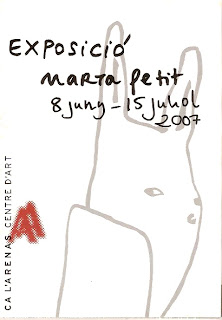 EXPOSICIÓ
marta petit
8 juny - 15 juliol
2007
CA L'ARENAS CENTRE D'ART